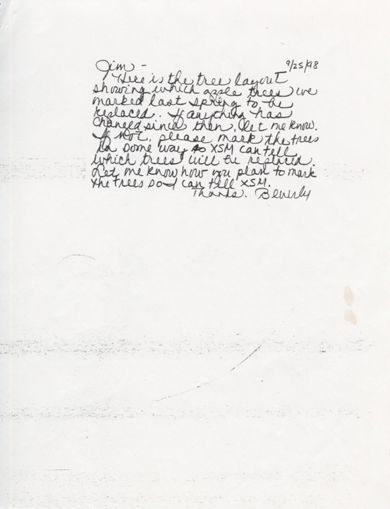 Jim - 9/25/98
Here is the tree layout
showing which apple trees we
marked last spring to be
replaced. If anything has
changed since then, let me know.
If not, please mark the trees
in some way so XSM can tell
which trees will be
Let me know how you plan to mark
the trees so I can tell XSM.
Thanks. Beverly